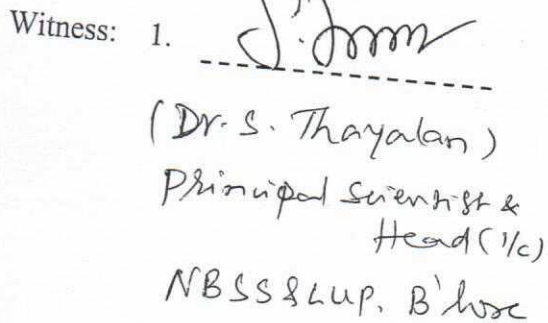 Witness: 1.
(Dr. S. Thayalan)
Principal Scientist &
Head (I/c)
NBSS&LUP. B'lore